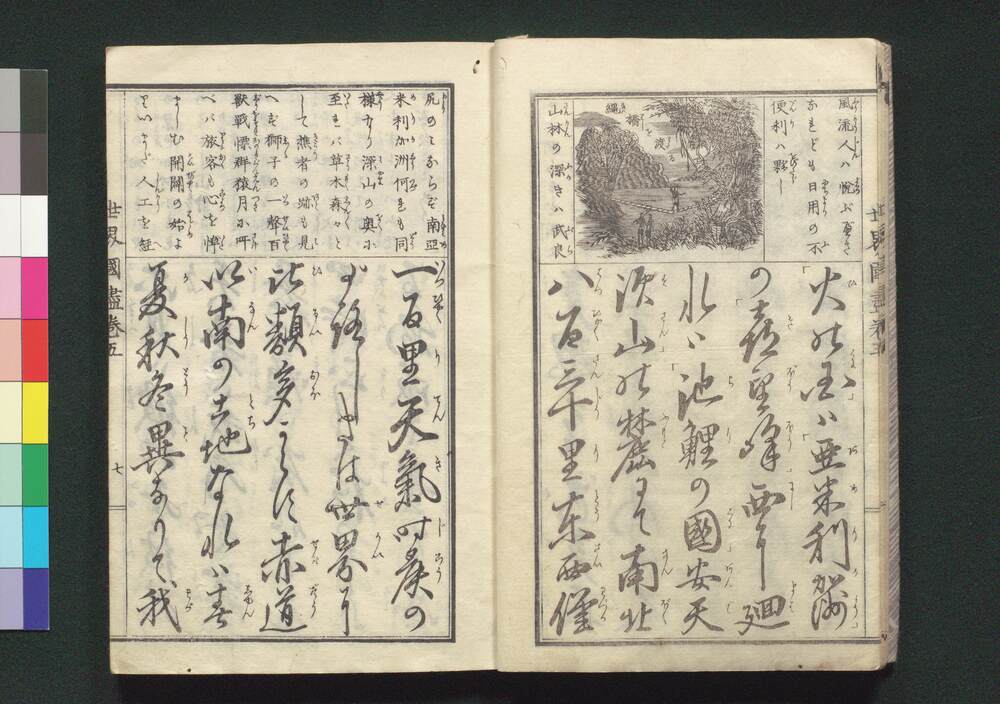 風流人ハ悦ぶべき
なれども日用の不
便利ハ夥し
縄橋を渡る
山林の深きハ武良
火の国ハ亜米利加洲
の喜望峰西に廻
れバ池鯉の國安天
須山の麓にて南北
八百三十里東西僅
世界國盡巻五
尻のミならず南亜
米利加洲何れも同
様なり深山の奥に
至れバ草木森々と
して樵者の跡も見
へず獅子の一聲百
獣戦慄群猿月に叫
べバ旅客も心を悼
ましむ開闢の始よ
りいまだ人工を経
一百里天氣時候の
世界に
此類多からず赤道
以南の土地なれバ春
夏秋冬異なりて我
世界國盡巻五
七